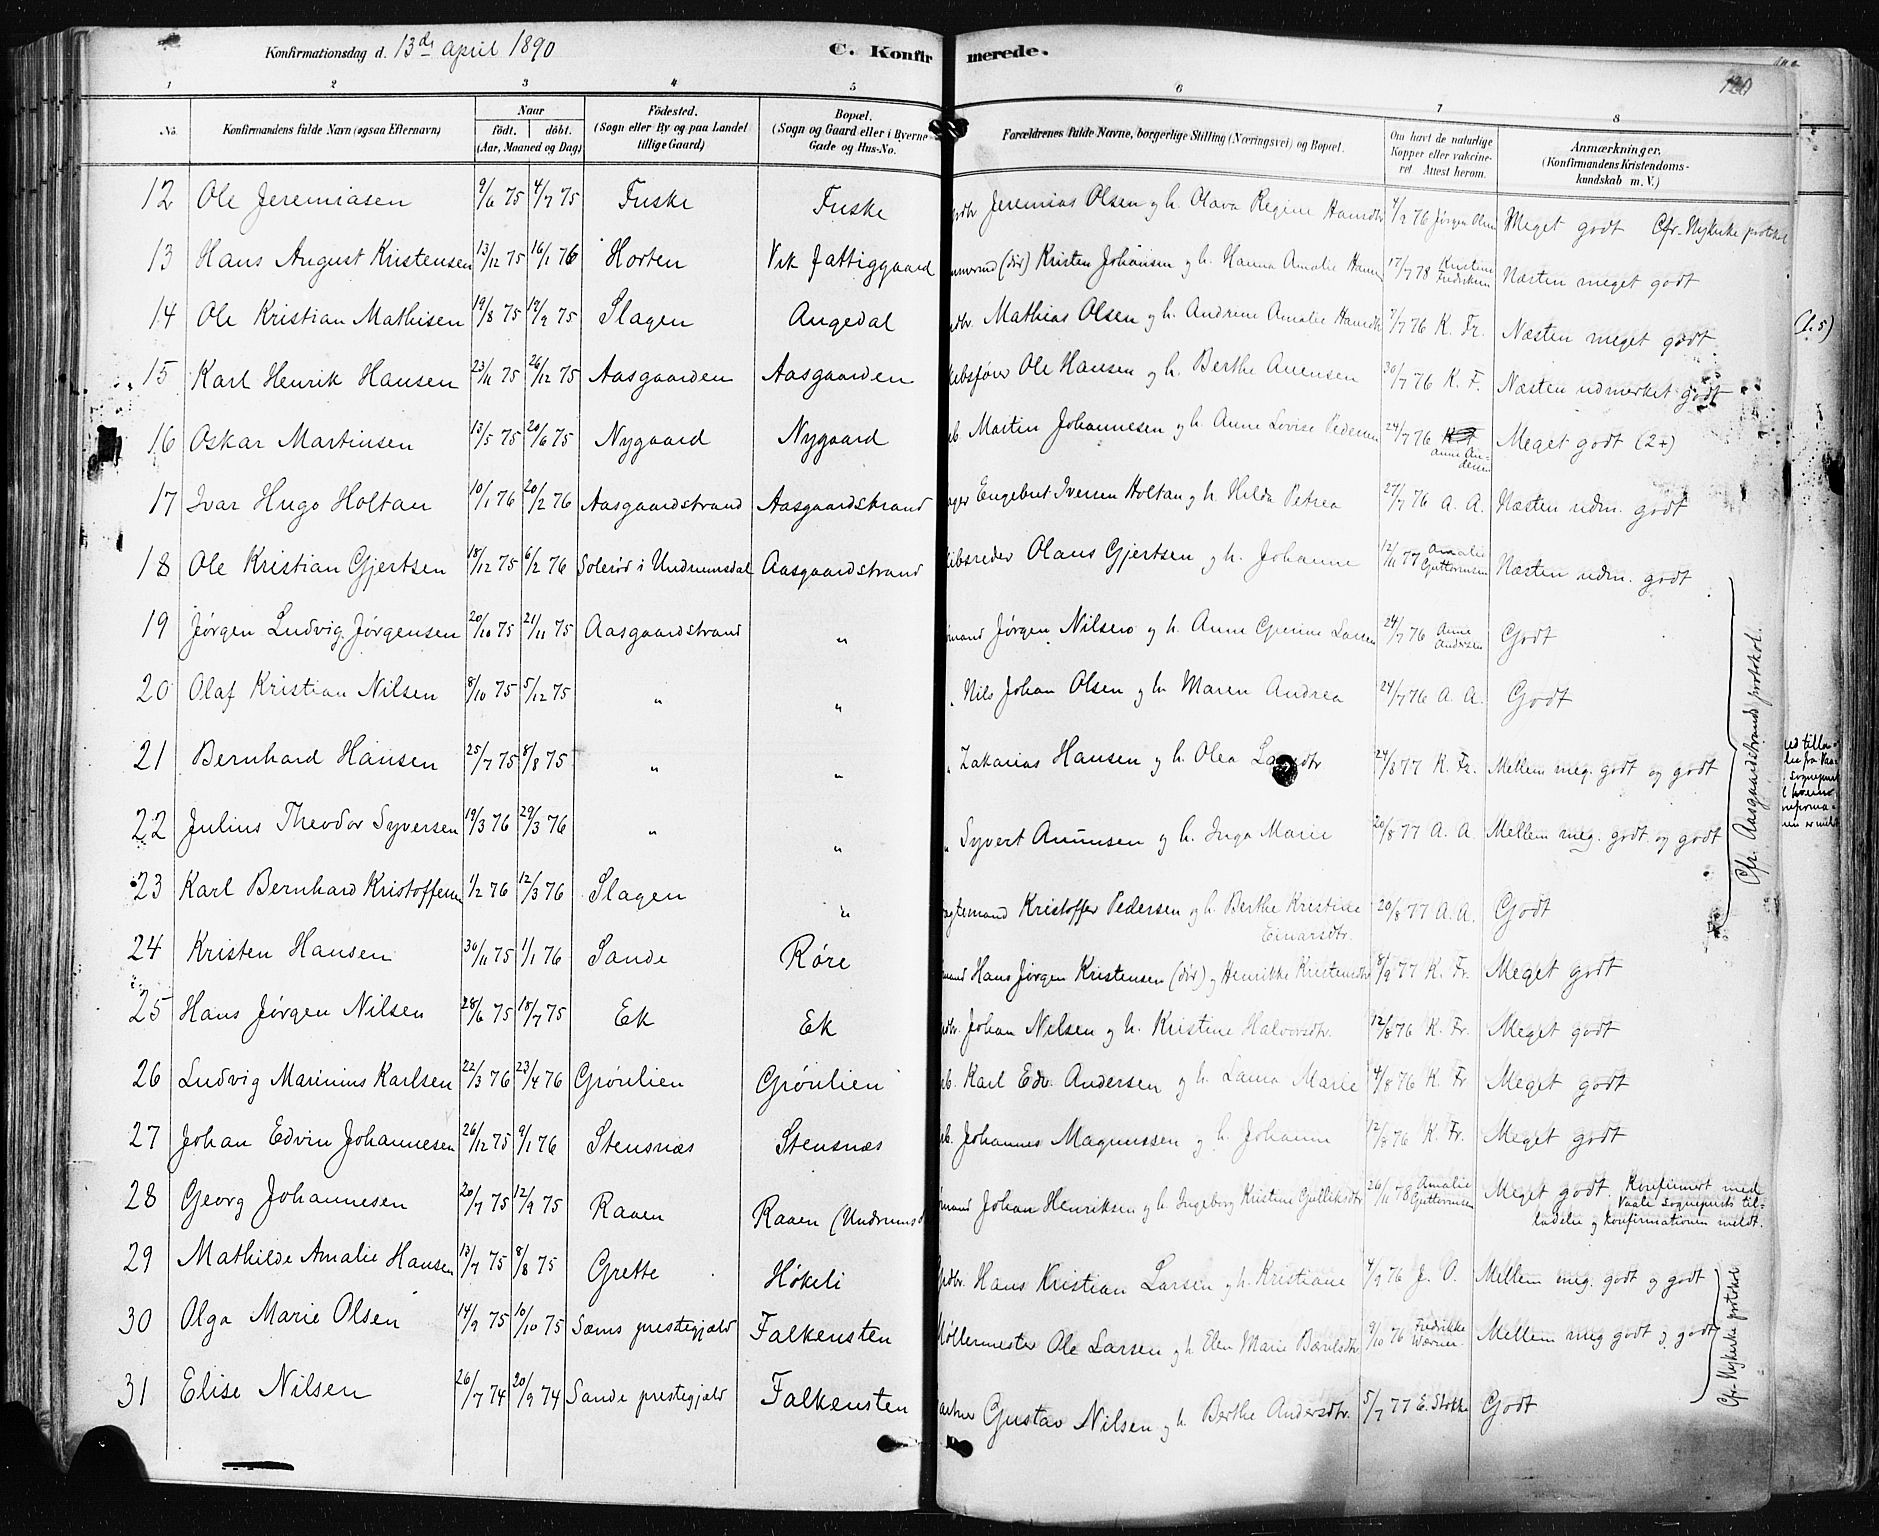 Konfirmationsdag d. 13de April 1890 C. Konfirmerede. 120
1 2 3 4 5 6 7 8
No. Konfirmandens fulde Navn (ogsaa Efternavn) Naar født. døbt. (Aar, Maaned og Dag) Fødested. (Sogn eller By og paa Landet tillige Gaard) Bopæl. (Sogn og Gaard eller i Byerne Gade og Hus-No. Forældrenes fulde Navne, borgerlige Stilling (Næringsvei) og Bopæl. Om havt de naturlige Kopper eller vakcineret Attest herom. Anmærkninger. (Konfirmandens Kristendomskundskab m. V.)
12 Ole Jeremiasen 9/6 75 4/7 75 Fuske Fuske Jeremias Olsen og h. Olava Regine Hansdtr 4/2 76 Jørgen Olsen Meget godt Cfr. Nykirke protokol
13 Hans August Kristensen 13/12 75 16/1 76 Horten Vik fattiggaard (død) Kristen Johansen og h. Hanna Amalie 17/7 78 Kristine Fredriksen Næsten meget godt
14 Ole Kristian Mathisen 19/8 75 19/9 75 Slagen Augedal Mathias Olsen og h. Andrine Amalie Hansdtr 7/7 76 K. Fr. Næsten meget godt
15 Karl Henrik Hansen 23/11 75 26/12 75 Aasgaarden Aasgaarden Ole Hansen og h. Berthe Anensen 30/7 76 K. F. Næsten udmerket godt
16 Oskar Martinsen 13/5 75 20/6 75 Nygaard Nygaard Martin Johannesen og h. Anne Lovise Pedersen 24/7 76 Anne Andersen Meget godt (2+)
17 Ivar Hugo Holtan 10/1 76 20/2 76 Aasgaardstrand Aasgaardstrand Engebret Iversen Holtan og h. Hilda Petrea 27/7 76 A. A. Næsten udm. godt
18 Ole Kristian Gjertsen 18/12 75 6/2 76 Solerød i Undrumsdal Aasgaardstrand Olaus Gjertsen og h. Johanne 12/11 77 Amalie Guttormsen Næsten udm. godt
19 Jørgen Ludvig Jørgensen 20/10 75 21/11 75 Aasgaardstrand " Jørgen Nilsen og h. Anne Gurine Larsen 24/7 76 Anne Andersen Godt
20 Olaf Kristian Nilsen 8/10 75 5/12 75 " " " Nils Johan Olsen og h. Maren Andrea 24/7 76 A. A. Godt
21 Bernhard Hansen 25/7 75 8/8 75 " " " Zakarias Hansen og h. Olea 24/8 77 K. Fr. Mellem meg. godt og godt
22 Julius Theodor Syversen 19/3 76 29/3 76 " " " Syvert Amunsen og h. Inga Marie 20/8 77 A. A. Mellem meg. godt og godt
Cfr. Aasgaardstrands protokol.
23 Karl Bernhard Kristoffersen 1/2 76 12/3 76 Slagen " Kristoffer Pedersen og h. Berthe Kristine Einarsdtr. 20/8 77 A. A. Godt
24 Kristen Hansen 30/11 75 1/1 76 Sande Røre Hans Jørgen Kristensen (død) og Henrikke Kristensdtr 8/9 77 K. Fr. Meget godt
25 Hans Jørgen Nilsen 28/6 75 18/7 75 Ek Ek Johan Nelsen og h. Kristine Halvorsdtr. 12/8 76 K. Fr. Meget godt
26 Ludvig Marinius Karlsen 22/3 76 23/4 76 Grønlien Grønlien Karl Edv. Andersen og h. Laura Marie 4/8 76 K. Fr Meget godt
27 Johan Edvin Johannesen 26/12 75 9/1 76 Stensnæs Stensnæs Johannes Magnussen og h. Johanne 12/8 76 K. Fr. Meget godt
28 Georg Johannesen 20/7 75 12/9 75 Raaen Raaen (Undrumsd Johan Henriksen og h. Ingeborg Kristine Gulliksdtr 26/11 78 Amalie Guttormsen Meget godt. Konfirmert med Vaale sogneprests tilladelse og konfirmationen meldt.
29 Mathilde Amalie Hansen 13/7 75 8/8 75 Grette Høkeli Hans Kristian Larsen og h. Kristiane 4/9 76 J. O. Mellem meg. godt og godt
30 Olga Marie Olsen 14/9 75 10/10 75 Sæms prestegjæld Falkensten Møllermester Ole Larsen og h. Elen Marie Bærelsdtr 9/10 76 Fredrikke Wærner. Mellem meg godt og godt
31 Elise Nilsen 26/7 74 20/9 74 Sande prestegjæld Falkensten Gustav Nilsen og h. Berthe Andersdtr. 5/7 77 E. Stokke Godt
Cfr. Nykirke protokol